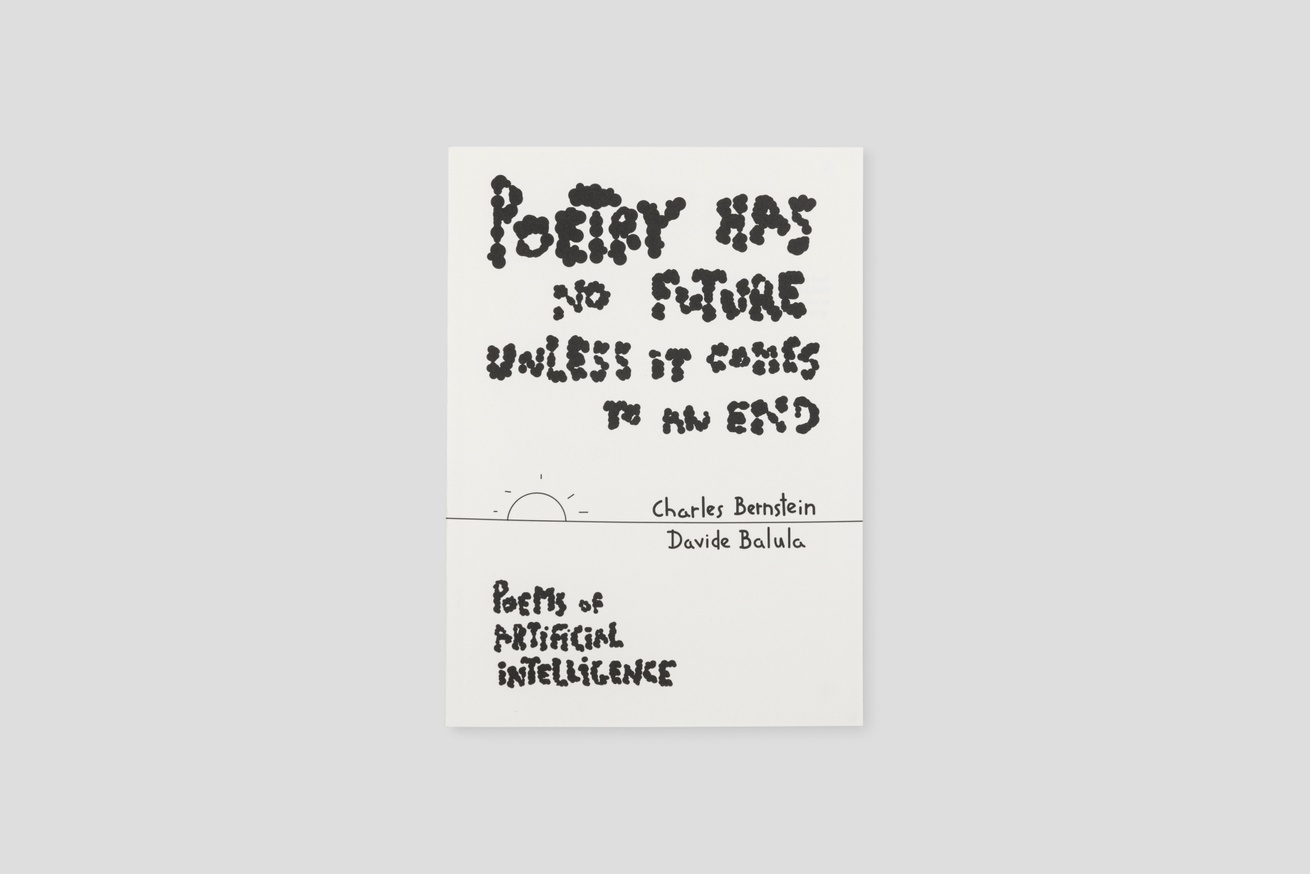 POETRY HAS
NO FUTURE
UNLESS iT COMES
TO AN END
Charles Bernstein
Davide Balula
POEMS of
ARTiFiCiAL
iNTELLiGENCE